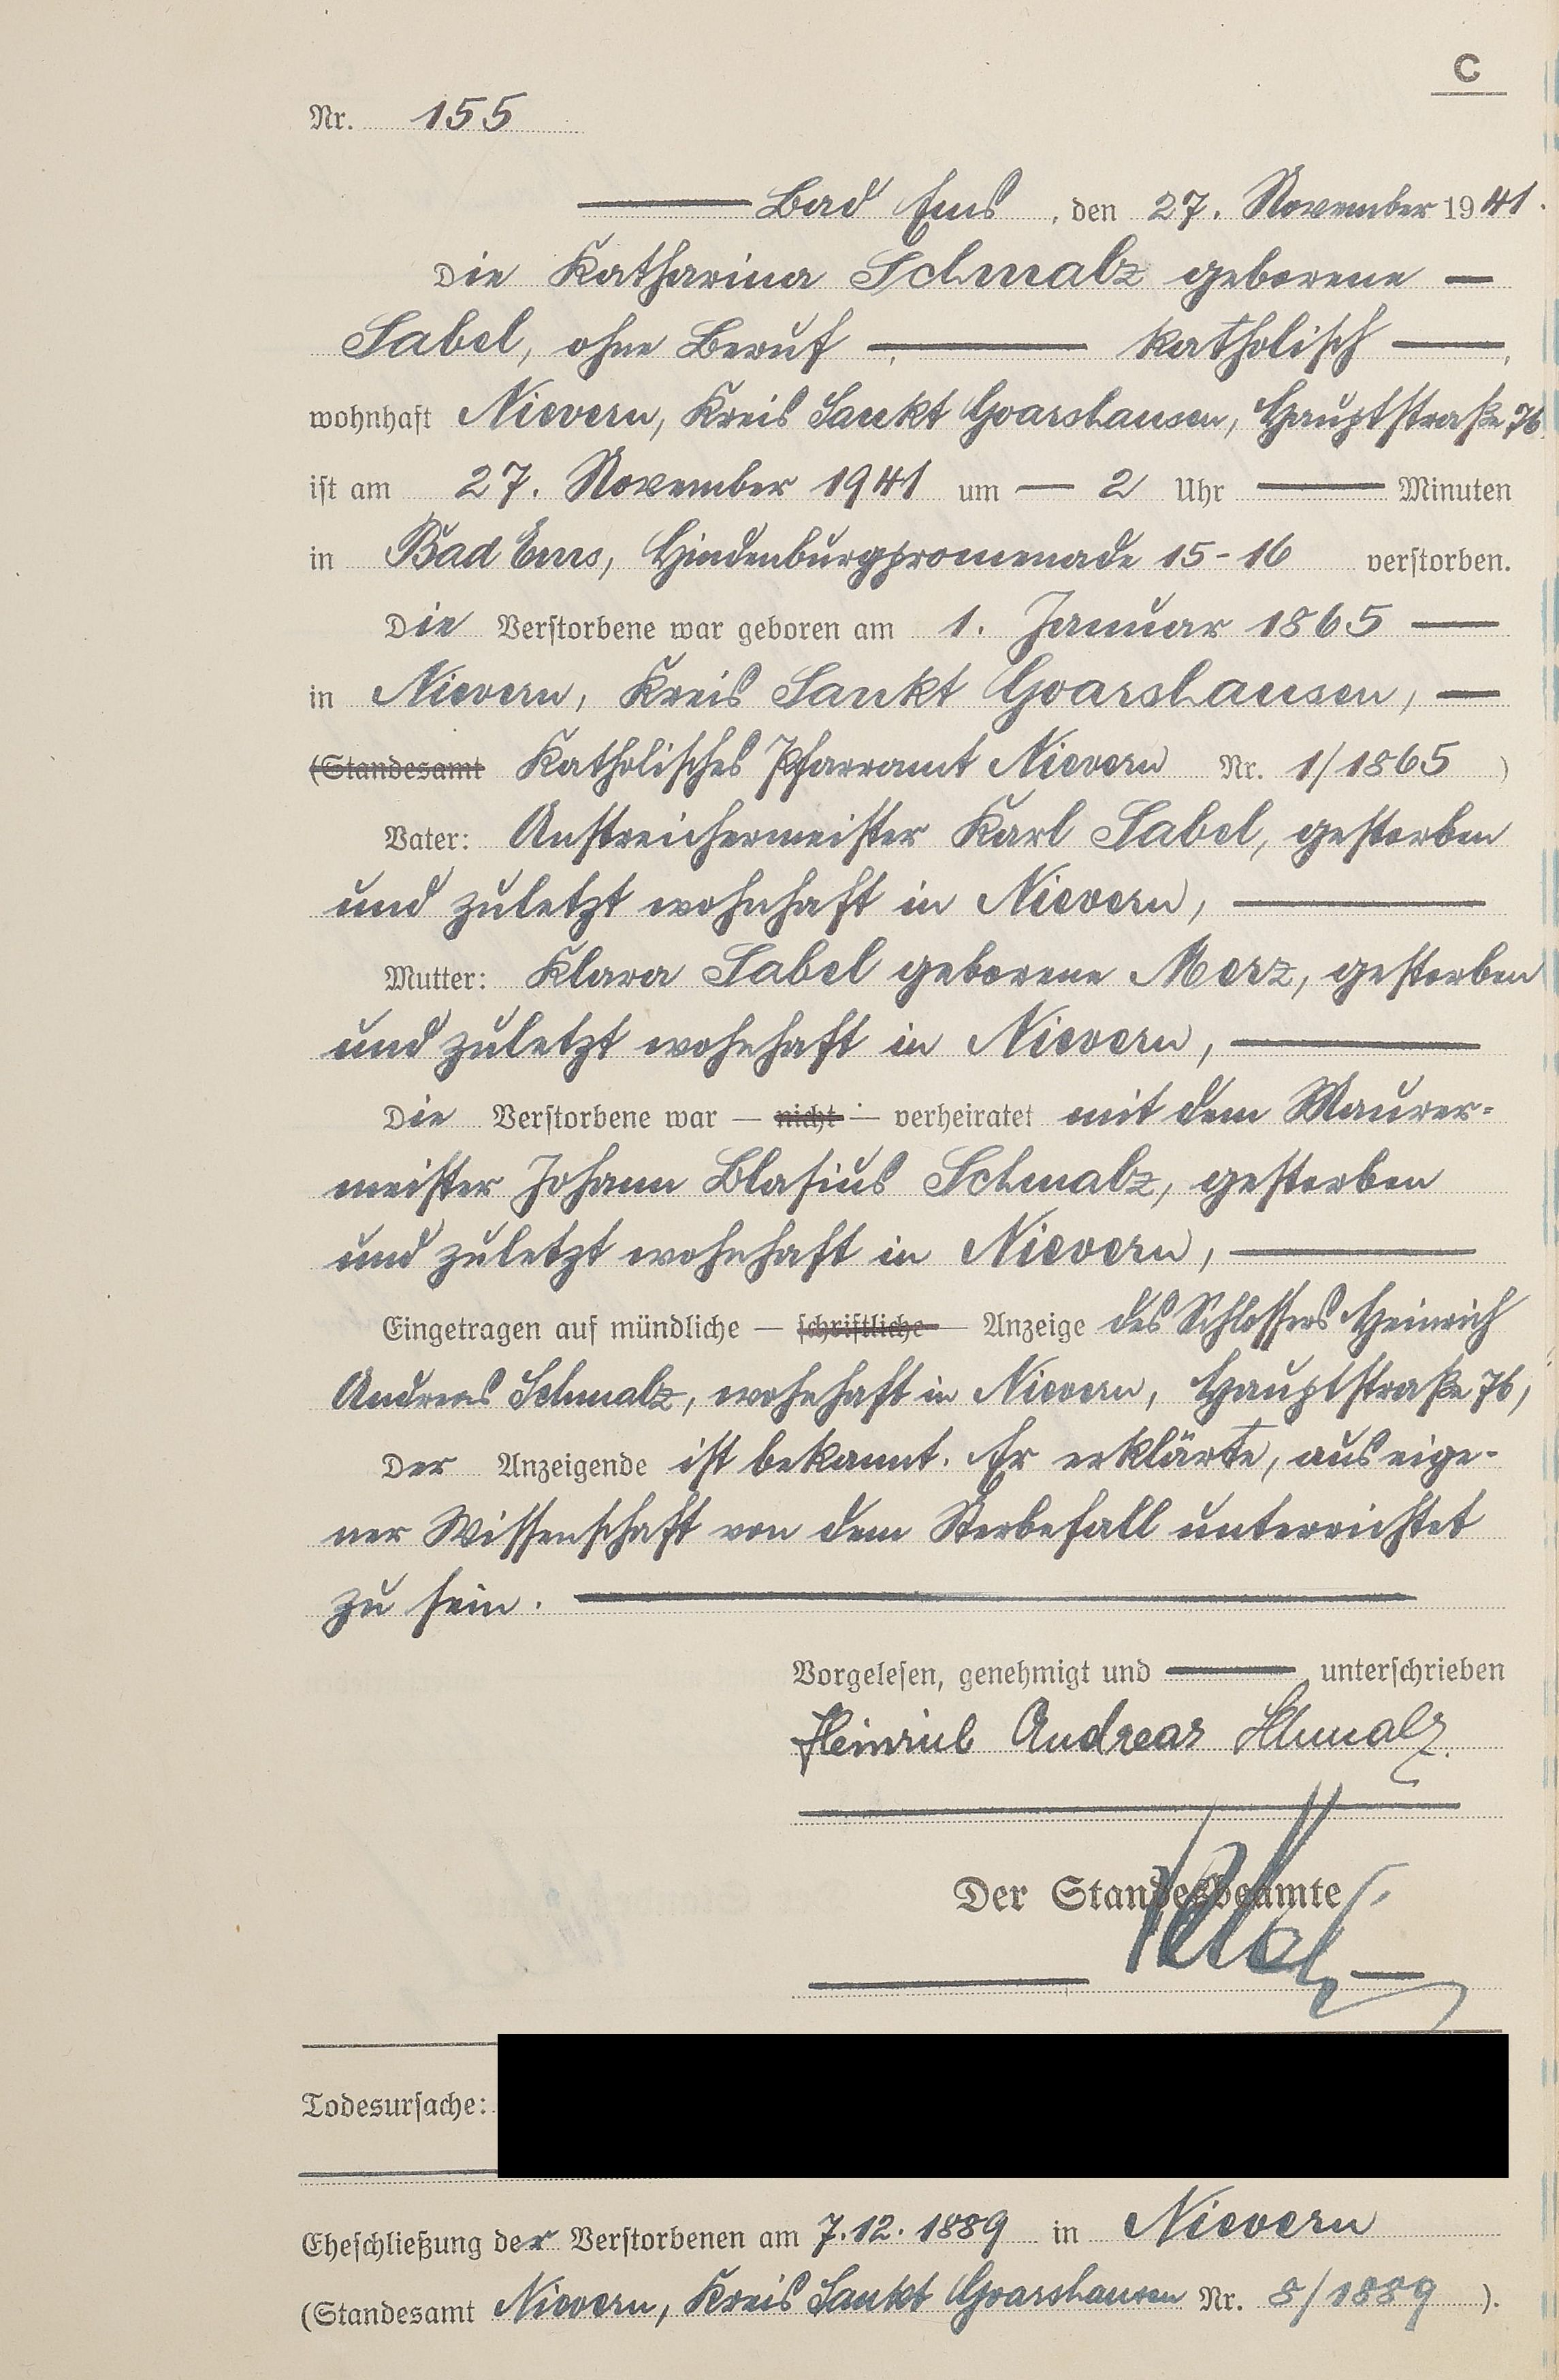 C
Nr. 155
Bad Ems, den 27. November 1941.
Die Katharina Schmalz geborene —
Sabel, ohne Beruf — katholisch —,
wohnhaft Nievern, Kreis Sankt Goarshausen, Hauptstraße 76
ist am 27. November 1941 um — 2 Uhr — Minuten
in Bad Ems, Hindenburgpromenade 15-16 verstorben.
Die Verstorbene war geboren am 1. Januar 1865 —
in Nievern, Kreis Sankt Goarshausen, —
(Standesamt Katholisches Pfarramt Nievern Nr. 1/1865)
Vater: Anstreichermeister Karl Sabel, gestorben
und zuletzt wohnhaft in Nievern, —
Mutter: Klara Sabel geborene Merz, gestorben
und zuletzt wohnhaft in Nievern, —
Die Verstorbene war — nicht — verheiratet mit dem Maurer-
meister Johann Blasius Schmalz, gestorben
und zuletzt wohnhaft in Nievern, —
Eingetragen auf mündliche — schriftliche — Anzeige des Schlossers Heinrich
Andreas Schmalz, wohnhaft in Nievern, Hauptstraße 76,
Der Anzeigende ist bekannt. Er erklärte, aus eige-
ner Wissenschaft von dem Sterbefall unterrichtet
zu sein. —
Vorgelesen, genehmigt und — unterschrieben
Heinrich Andreas Schmalz.
Der Standesbeamte
Todesursache:
Eheschließung der Verstorbenen am 7.12.1889 in Nievern
(Standesamt Nievern, Kreis Sankt Goarshausen Nr. 8/1889).